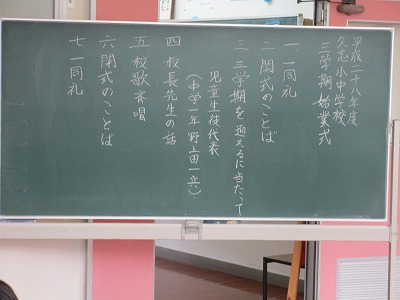 平成二十八年度
久志小中学校
三学期始業式
一 一同礼
二 開式のことば
三 三学期を迎えるに当たって
児童生徒代表
(中学一年 野上田一兵)
四 校長先生の話
五 校歌斉唱
六 閉式のことば
七 一同礼